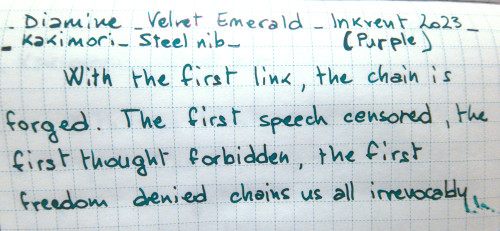 - Diamine - Velvet Emerald - Inkvent 2023 -
- Kakimori - Steel nib - (Purple)
With the first link, the chain is
forged. The first speech censored, the
first thought forbidden, the first
freedom denied chains us all irrevocably